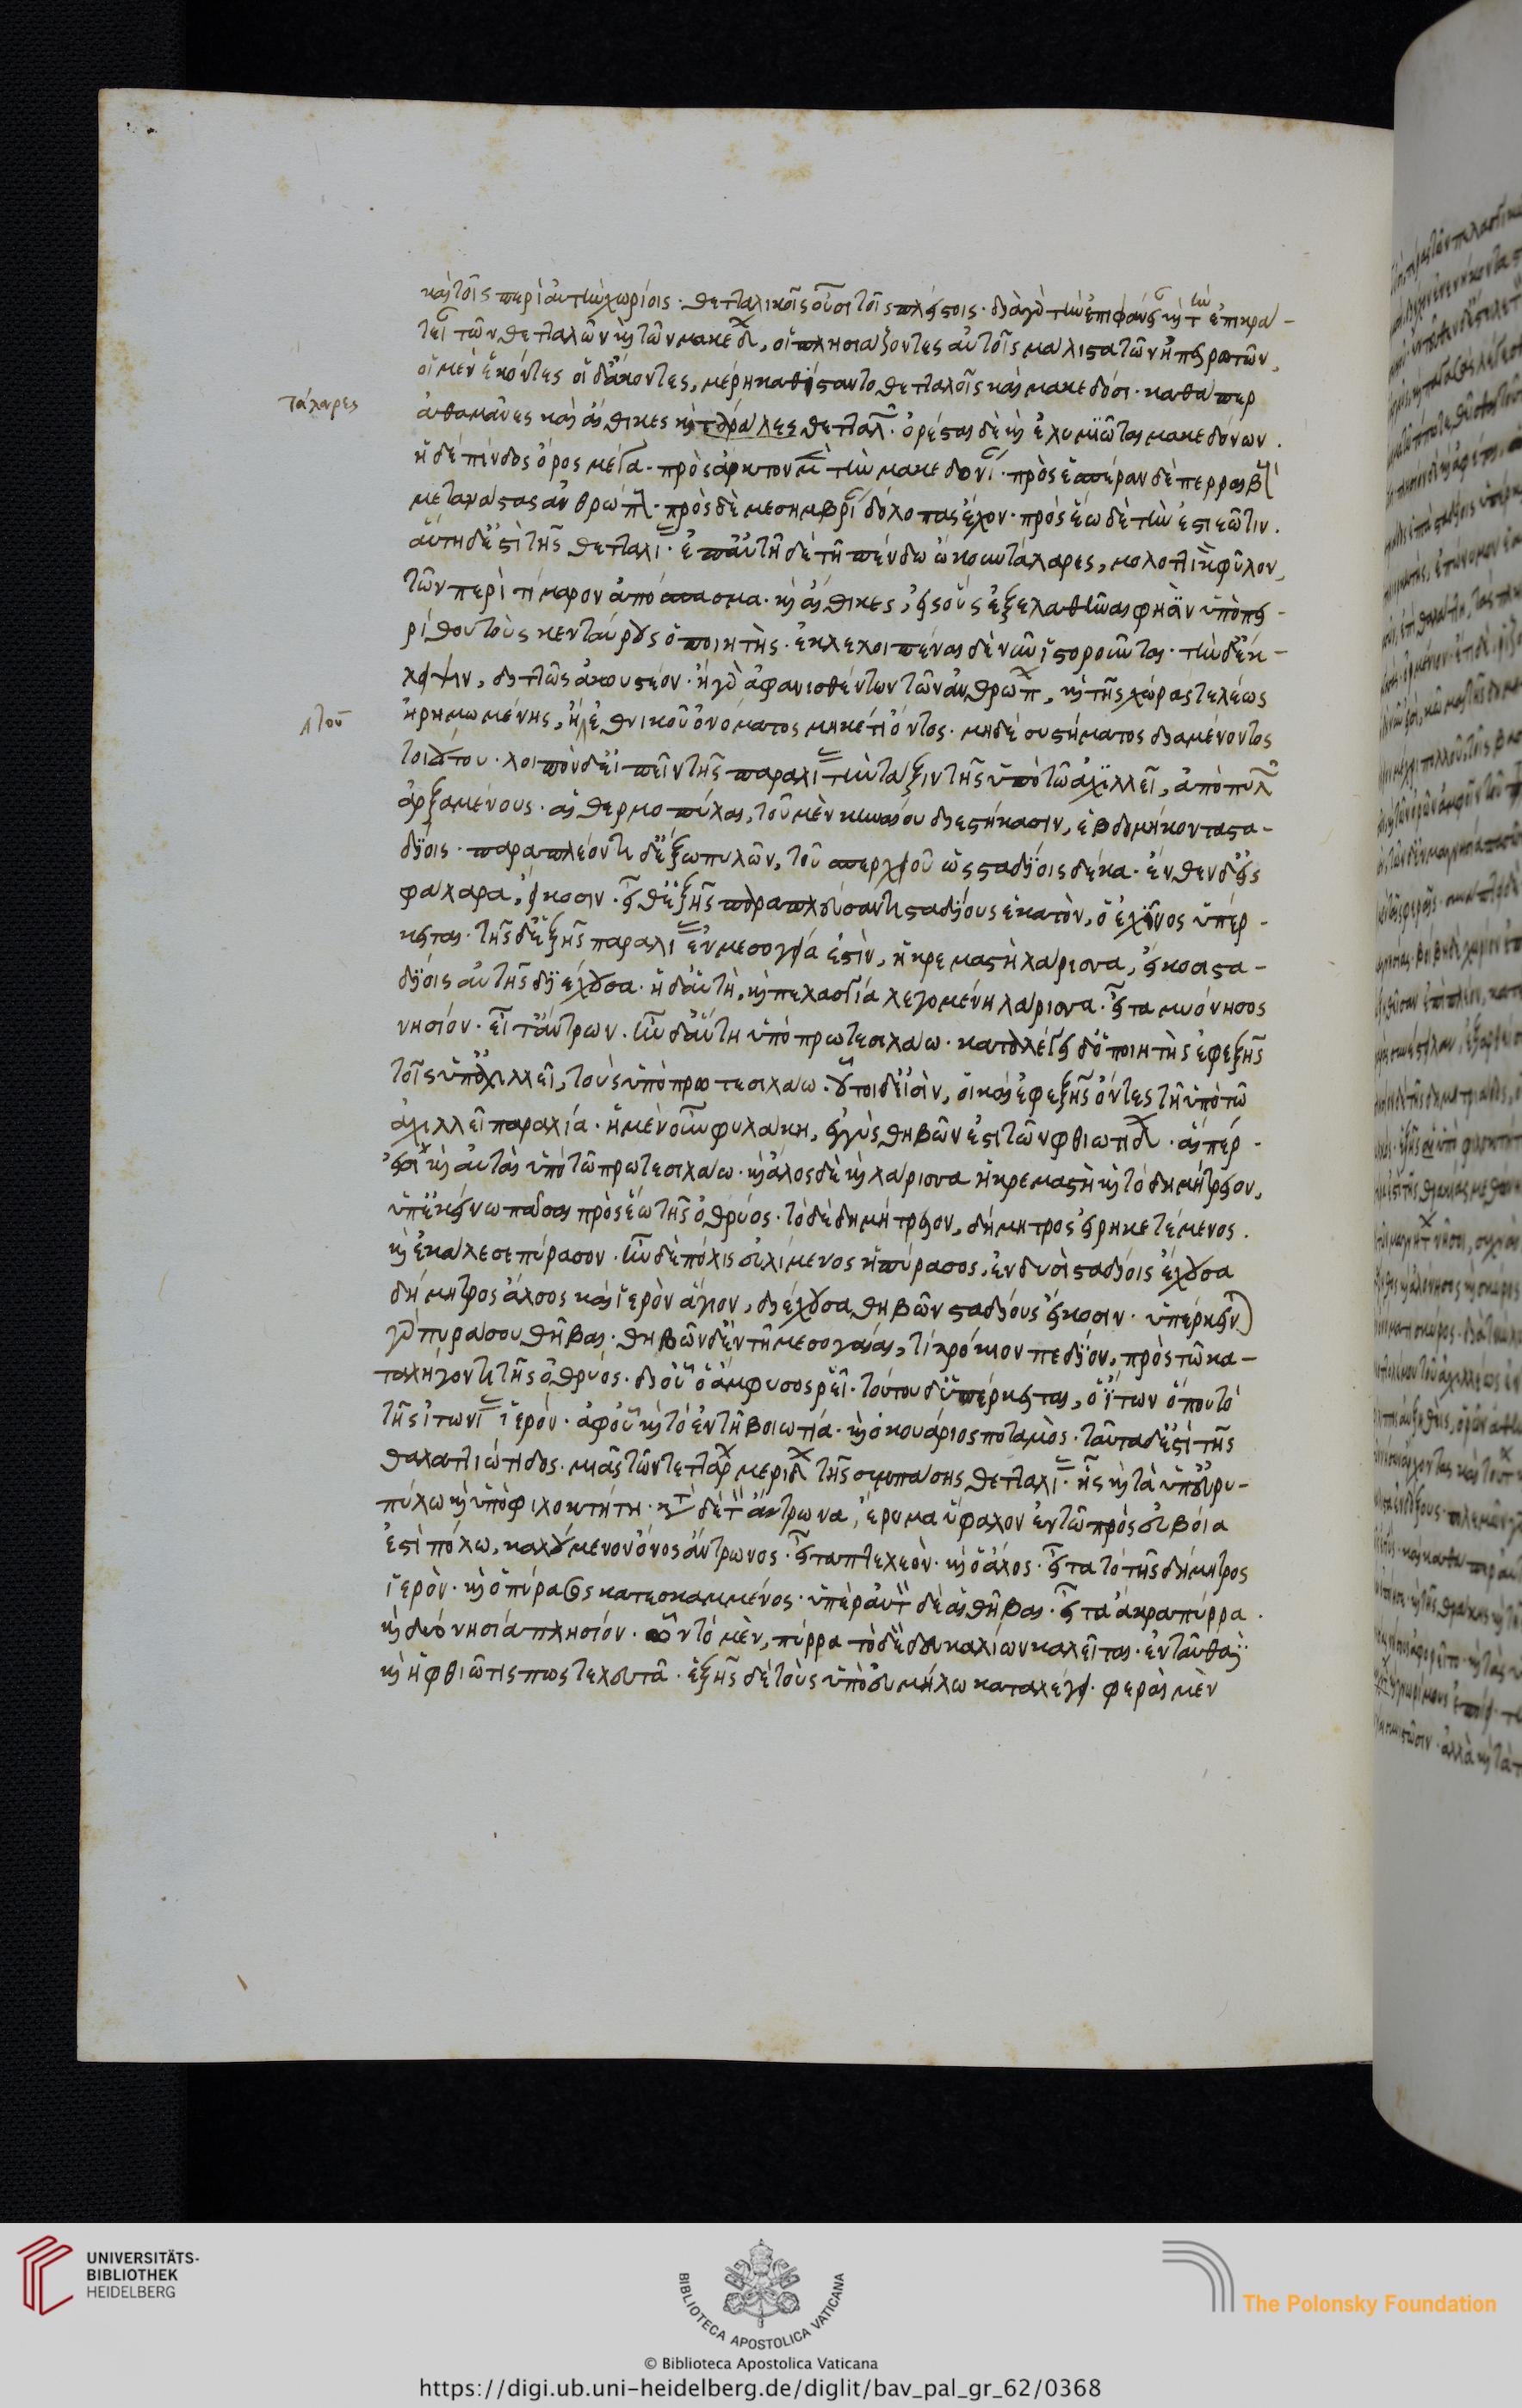 καὶ τοῖς περὶ αὐτὴν χωρίοις· θετταλικοῖς οὖσι τοῖς πλείστοις· διὰ γὰρ τὴν ἐπιφάνειαν καὶ τὴν ἐπικρα-
τείαν τῶν θετταλῶν καὶ τῶν μακεδ, οἱ πλησιάζοντες αὐτοῖς μάλιστα τῶν ἠπειρωτῶν,
οἱ μὲν ἑκόντες οἱ δἄκοντες, μέρη καθίσταντο θετταλοῖς καὶ μακεδόσι· καθάπερ
τάλαρες
ἀθαμᾶνες καὶ αἴθικες καὶ τοράλες θετταλ· ὀρέσται δὲ καὶ ἐλυμιῶται μακεδόνων.
ἡ δὲ πίνδος ὄρος μέγα· πρὸς ἄρκτον μὲν τὴν μακεδονί· πρὸς ἑσπέραν δὲ περραιβ
μετανάστας ἀνθρώπ· πρὸς δὲ μεσημβρί δόλοπας ἔχον· πρὸς ἕω δὲ τὴν ἑστιεῶτιν.
αὕτη δἐστὶ τῆς θετταλί· ἐπαὐτῆ δὲ τῆ πίνδω ὤκουν τάλαρες, μολοττικὸν φῦλον,
τῶν περὶ τίμαρον ἀπόσπασμα· καὶ αἴθικες, εἰς οὓς ἐξελαθῆναι φησὶν ὑπὸ πει-
ρίθου τοὺς κενταύρους ὁ ποιητὴς· ἐκλελοιπέναι δὲ νῦν ἱστοροῦνται· τὴν δἔκ-
λειψιν, διττῶς ἀκουστέον· ἢ γὰρ ἀφανισθέντων τῶν ἀνθρώπ, καὶ τῆς χώρας τελέως
τοῦ
ἠρημωμένης, ἢ ἐθνικοῦ ὀνόματος μηκέτι ὄντος· μηδὲ συστήματος διαμένοντος
τοιούτου· λοιπὸν δεἰπεῖν τῆς παραλί τὴν τάξιν τῆς ὑπὸ τῶ ἀχιλλεῖ, ἀπὸ πυλ
ἀρξαμένους· αἱ θερμοπύλαι, τοῦ μὲν κηναίου διεστήκασιν, ἑβδομήκοντα στα-
δίοις· παραπλέοντι δἔξω πυλῶν, τοῦ σπερχειοῦ ὡς σταδίοις δέκα· ἔνθεν δεἰς
φάλαρα, εἴκοσιν· εἶθἑξῆς παραπλεύσαντι σταδίους ἑκατὸν, ὁ ἐχῖνος ὑπέρ-
κειται· τῆς δἑξῆς παραλί ἐν μεσογεία ἐστὶν, ἡ κρεμαστὴ λάρισσα, εἴκοσι στα-
δίοις αὐτῆς διέχουσα· ἡ δαὐτὴ, καὶ πελασγία λεγομένη λάρισσα· εἶτα μυόνησος
νησίον· εἶτἄντρων· ἦν δαὕτη ὑπὸ πρωτεσιλάω· καταλέγει δὁ ποιητὴς ἐφεξῆς
τοῖς ὑπἀχιλλεῖ, τοὺς ὑπὸ πρωτεσιλάω· οὗτοι δεἰσὶν, οἱ καὶ ἐφεξῆς ὄντες τῆ ὑπὸ τῶ
ἀχιλλεῖ παραλία· ἡ μὲν οὖν φυλάκη, ἐγγὺς θηβῶν ἐστὶ τῶν φθιωτιδ· αἵπερ
εἰσὶ καὶ αὐταὶ ὑπὸ τῶ πρωτεσιλάω· καὶ ἅλος δὲ καὶ λάρισσα ἡ κρεμαστὴ καὶ τὸ δημήτρειον,
ὑπἐκείνω πᾶσαι πρὸς ἕω τῆς ὄθρυος· τὸ δὲ δημήτρειον, δήμητρος εἴρηκε τέμενος.
καὶ ἐκάλεσε πύρασον· ἦν δὲ πόλις εὐλίμενος ἡ πύρασος, ἐν δυσὶ σταδίοις ἔχουσα
δήμητρος ἄλσος καὶ ἱερὸν ἅγιον, διέχουσα θηβῶν σταδίους εἴκοσιν· ὑπέρκειν
γὰρ πυράσου θῆβαι· θηβῶν δἐν τῆ μεσογαίαι, τὶ κρόκιον πεδίον, πρὸς τῶ κα-
ταλήγοντι τῆς ὄθρυος· διοὗ ὁ ἄμφυσος ῥεῖ· τούτου δὑπέρκειται, ὁ ἴτων ὅπου τὸ
τῆς ἰτωνί ἱερὸν· ἀφοὗ καὶ τὸ ἐν τῆ βοιωτία· καὶ ὁ κουάριος ποταμὸς· ταῦτα δἐστὶ τῆς
θαλαττιώτιδος· μιᾶς τῶν τετταρ μεριδ τῆς συμπάσης θετταλί· ἧς καὶ τὰ ὑπεὐρυ-
πύλω καὶ ὑπὸ φιλοκτήτη· κατὰ δὲ τὸν ἄντρωνα, ἕρμα ὕφαλον ἐν τῶ πρὸς εὐβοία
ἐστὶ πόρω, καλούμενον ὄνος ἄντρωνος· εἶτα πτελεὸν· καὶ ὁ ἅλος· εἶτα τὸ τῆς δήμητρος
ἱερὸν· καὶ ὁ πύρασος κατεσκαμμένος· ὑπὲρ αὐτὸν δὲ αἱ θῆβαι· εἶτα ἄκρα πύρρα.
καὶ δύο νησία πλησίον· ὧν τὸ μὲν, πύρρα τὸ δὲ δευκαλίων καλεῖται· ἐνταῦθα
καὶ ἡ φθιῶτις πως τελευτᾶ· ἑξῆς δὲ τοὺς ὑπὸ εὐμήλω καταλέγει· φερὰς μὲν
UNIVERSITÄTS-
BIBLIOTHEK
HEIDELBERG
BIBLIOTECA APOSTOLICA VATICANA
The Polonsky Foundation
© Biblioteca Apostolica Vaticana
https://digi.ub.uni-heidelberg.de/diglit/bav_pal_gr_62/0368